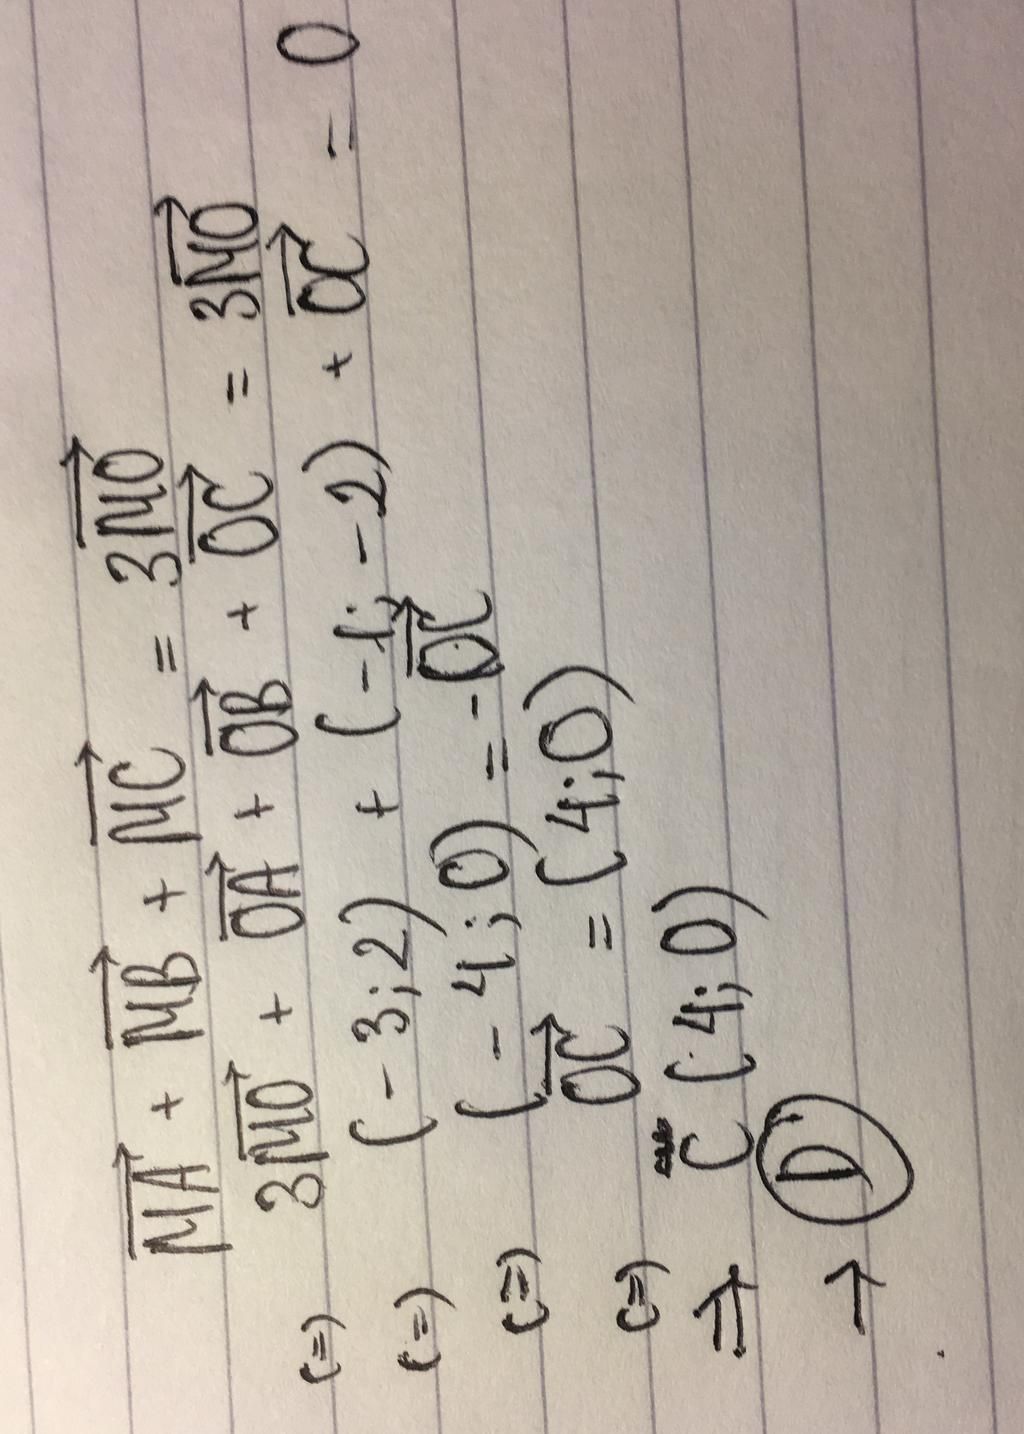 MA⃗ + MB⃗ + MC⃗ = 3MO⃗
(=) 3MO⃗ + OA⃗ + OB⃗ + OC⃗ = 3MO⃗
(=) (-3;2) + (-1;-2) + OC⃗ = 0
(=) (-4;0) = -OC⃗
(=) OC⃗ = (4;0)
⇒ C(4;0)
→ D